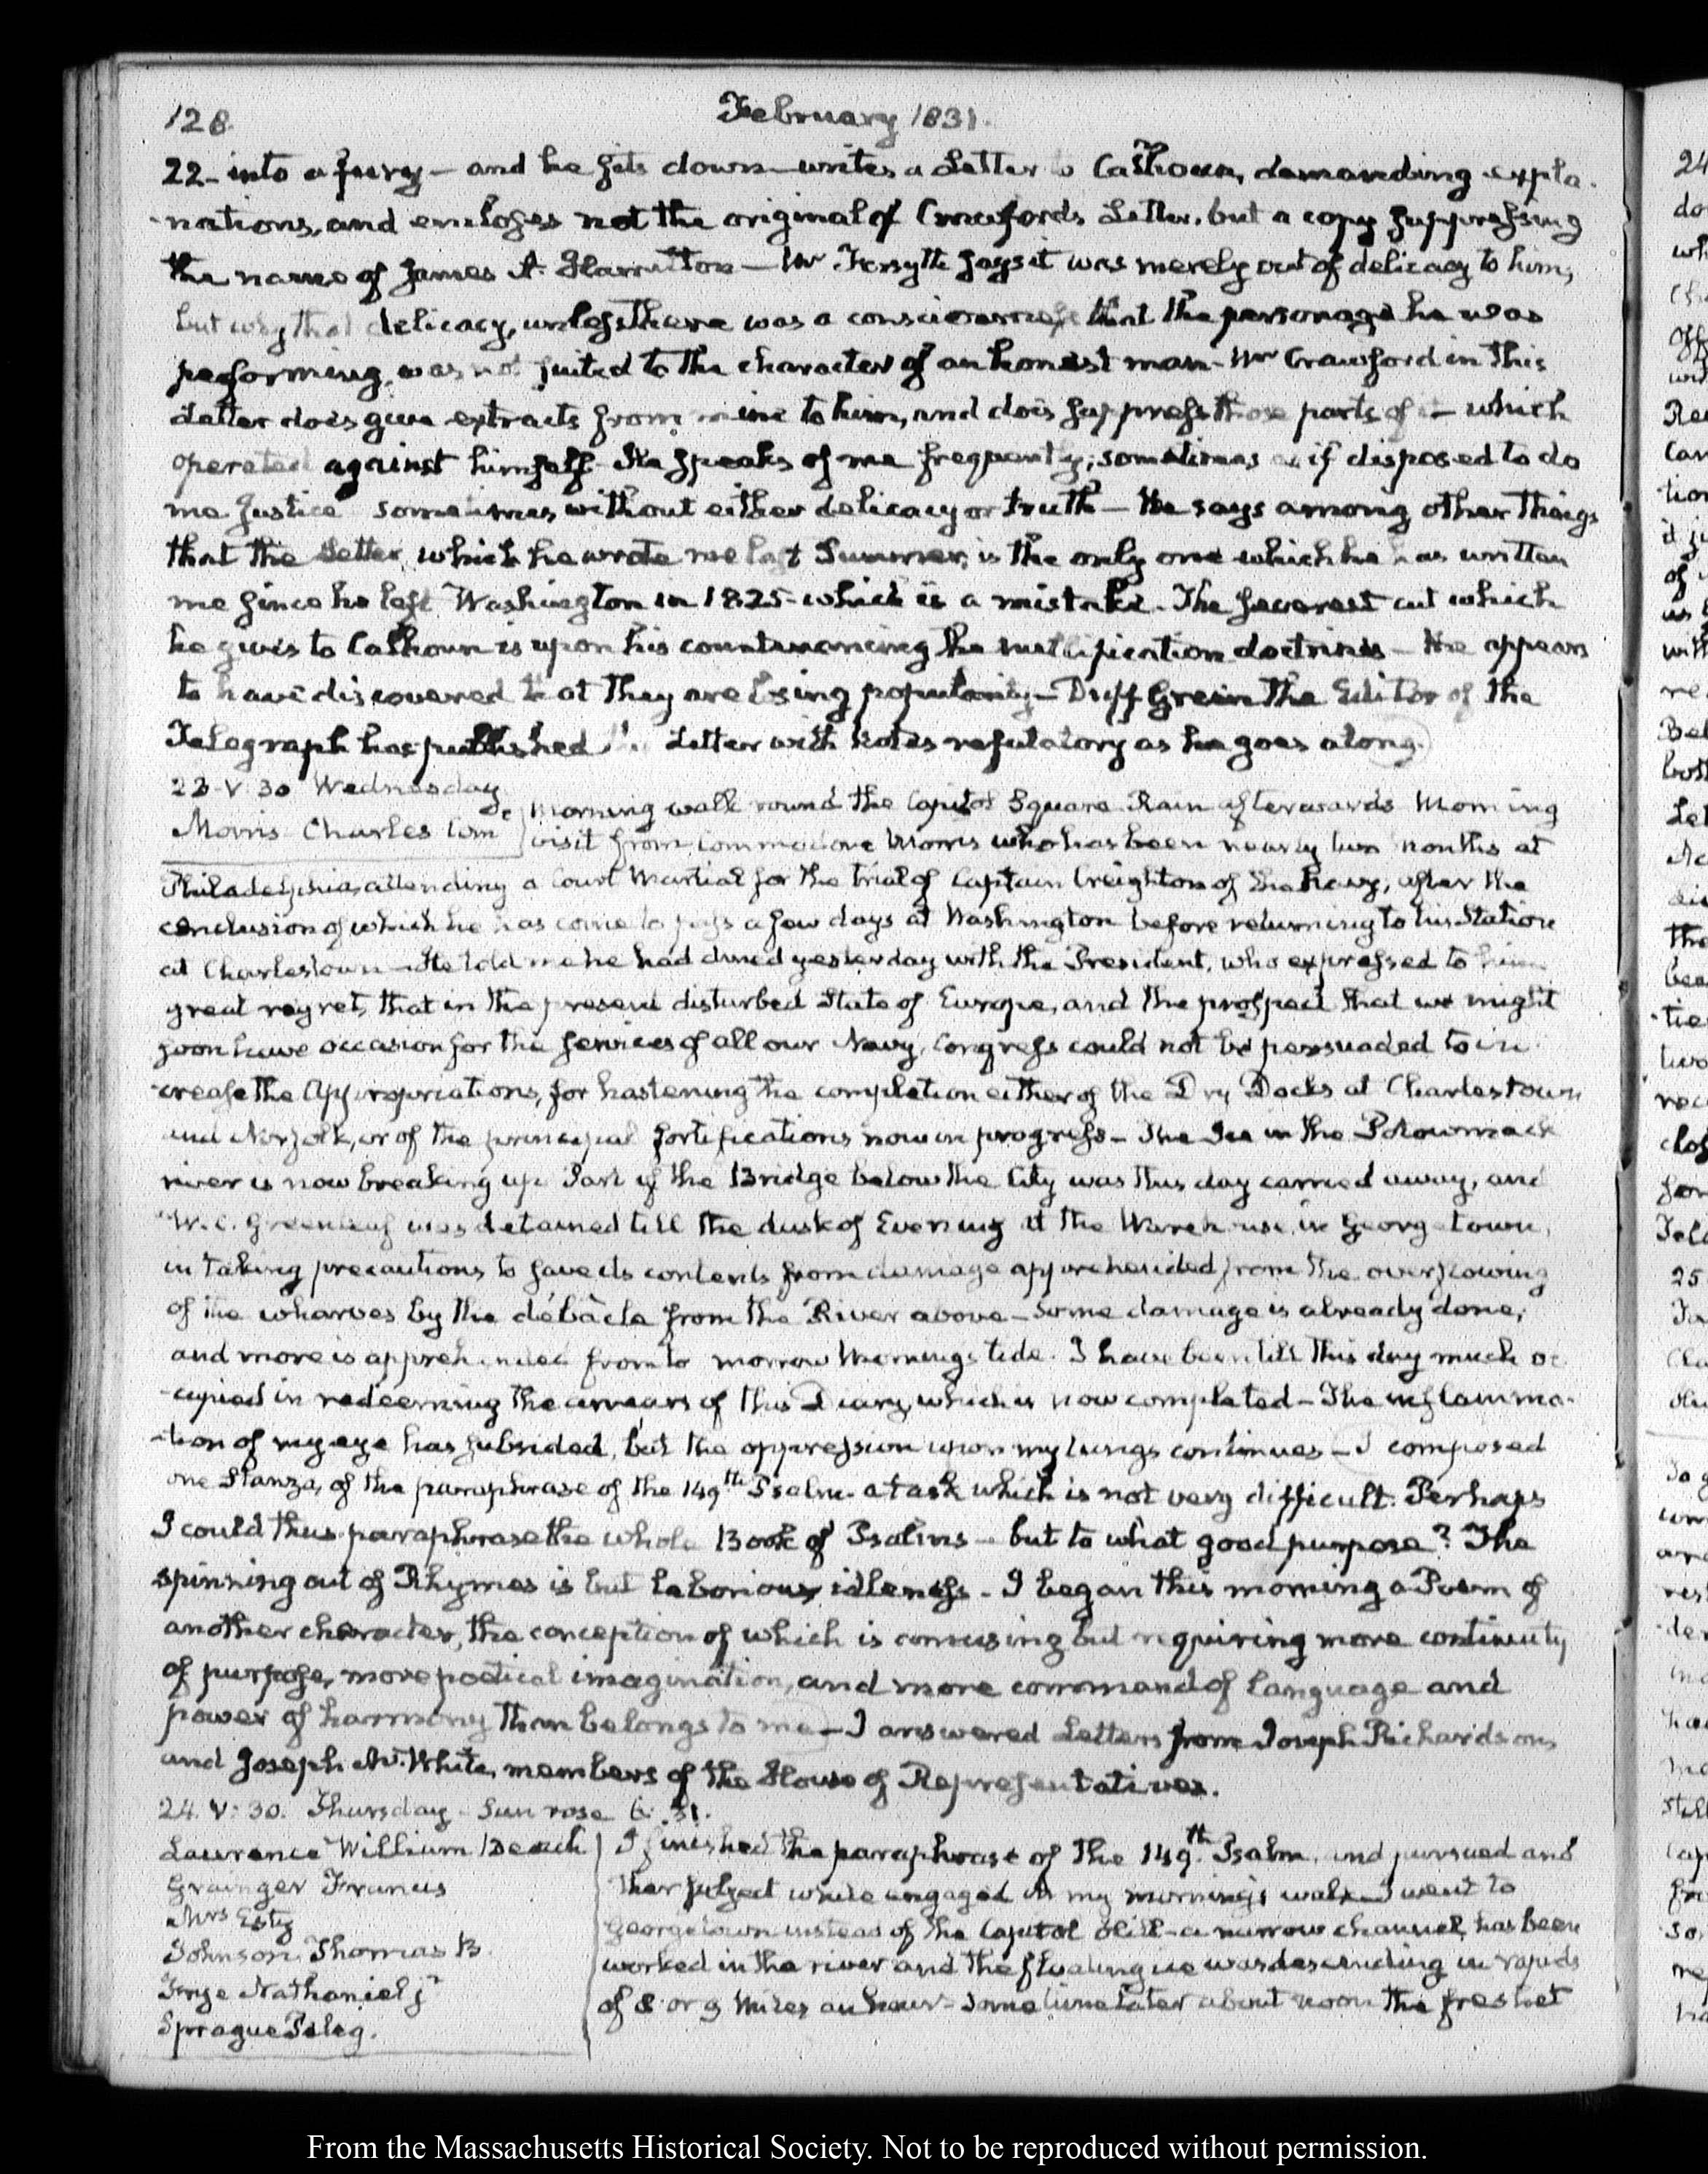 128.
February 1831.
22- into a fury — and he sits down — writes a Letter to Calhoun, demanding expla-
-nations, and encloses not the original of Crawford's Letter, but a copy suppressing
the name of James A. Hamilton — Mr Forsyth says it was merely out of delicacy to him,
but why that delicacy, unless there was a consciousness that the personage he was
performing, was not suited to the character of an honest man - Mr Crawford in this
Letter does give extracts from mine to him, and does suppress those parts of it — which
operated against himself. He speaks of me frequently; sometimes as if disposed to do
me Justice sometimes without either delicacy or truth — He says among other things
that the Letter, which he wrote me last Summer, is the only one which he has written
me since he left Washington in 1825 - which is a mistake. The severest cut which
he gives to Calhoun is upon his countenancing the nullification doctrines — He appears
to have discovered that they are losing popularity — Duff Green the Editor of the
Telegraph has published the Letter with Notes refutatory as he goes along.
23. V. 30 Wednesday.
Morris Charles Com
Morning walk round the Capitol Square. Rain afterwards Morning
visit from Commodore Morris who has been nearly two months at
Philadelphia, attending a Court Martial for the trial of Captain Creighton of the Navy, after the
conclusion of which he has come to pass a few days at Washington before returning to his Station
at Charlestown — He told me he had dined yesterday with the President, who expressed to him
great regret, that in the present disturbed State of Europe, and the prospect that we might
soon have occasion for the services of all our Navy, Congress could not be persuaded to in-
-crease the Appropriations, for hastening the completion either of the Dry Docks at Charlestown
and Norfolk, or of the principal fortifications now in progress — The Ice in the Potowmack
river is now breaking up. Part of the Bridge below the City was this day carried away, and
W. C. Greenleaf was detained till the dusk of Evening at the Warehouse in Georgetown,
in taking precautions to save its contents from damage apprehended from the overflowing
of the wharves by the débâcle from the River above — Some damage is already done,
and more is apprehended from to morrow Morning's tide. I have been till this day much oc-
-cupied in redeeming the arrears of this Diary, which is now completed — The inflamma-
-tion of my eye has subsided, but the oppression upon my lungs continues — I composed
one Stanza, of the paraphrase of the 149th Psalm - a task which is not very difficult. Perhaps
I could thus paraphrase the whole Book of Psalms — but to what good purpose? The
spinning out of Rhymes is but laborious idleness - I began this morning a Poem of
another character, the conception of which is amusing but requiring more continuity
of purpose, more poetical imagination, and more command of Language and
power of harmony than belongs to me — I answered Letters from Joseph Richardson,
and Joseph M. White, members of the House of Representatives.
24. V: 30. Thursday - Sun rose 6. 31.
Lawrence William Beach
Grainger Francis
Mrs Esty
Johnson Thomas B.
Frye Nathaniel jr
Sprague Peleg.
I finished the paraphrase of the 149th Psalm, and pursued ano
ther subject while engaged in my morning's walk — I went to
Georgetown instead of the Capitol Hill - a narrow channel has been
worked in the river and the floating ice was descending in rapids
of 8 or 9 Miles an hour - Some time later about noon the freshet
From the Massachusetts Historical Society. Not to be reproduced without permission.